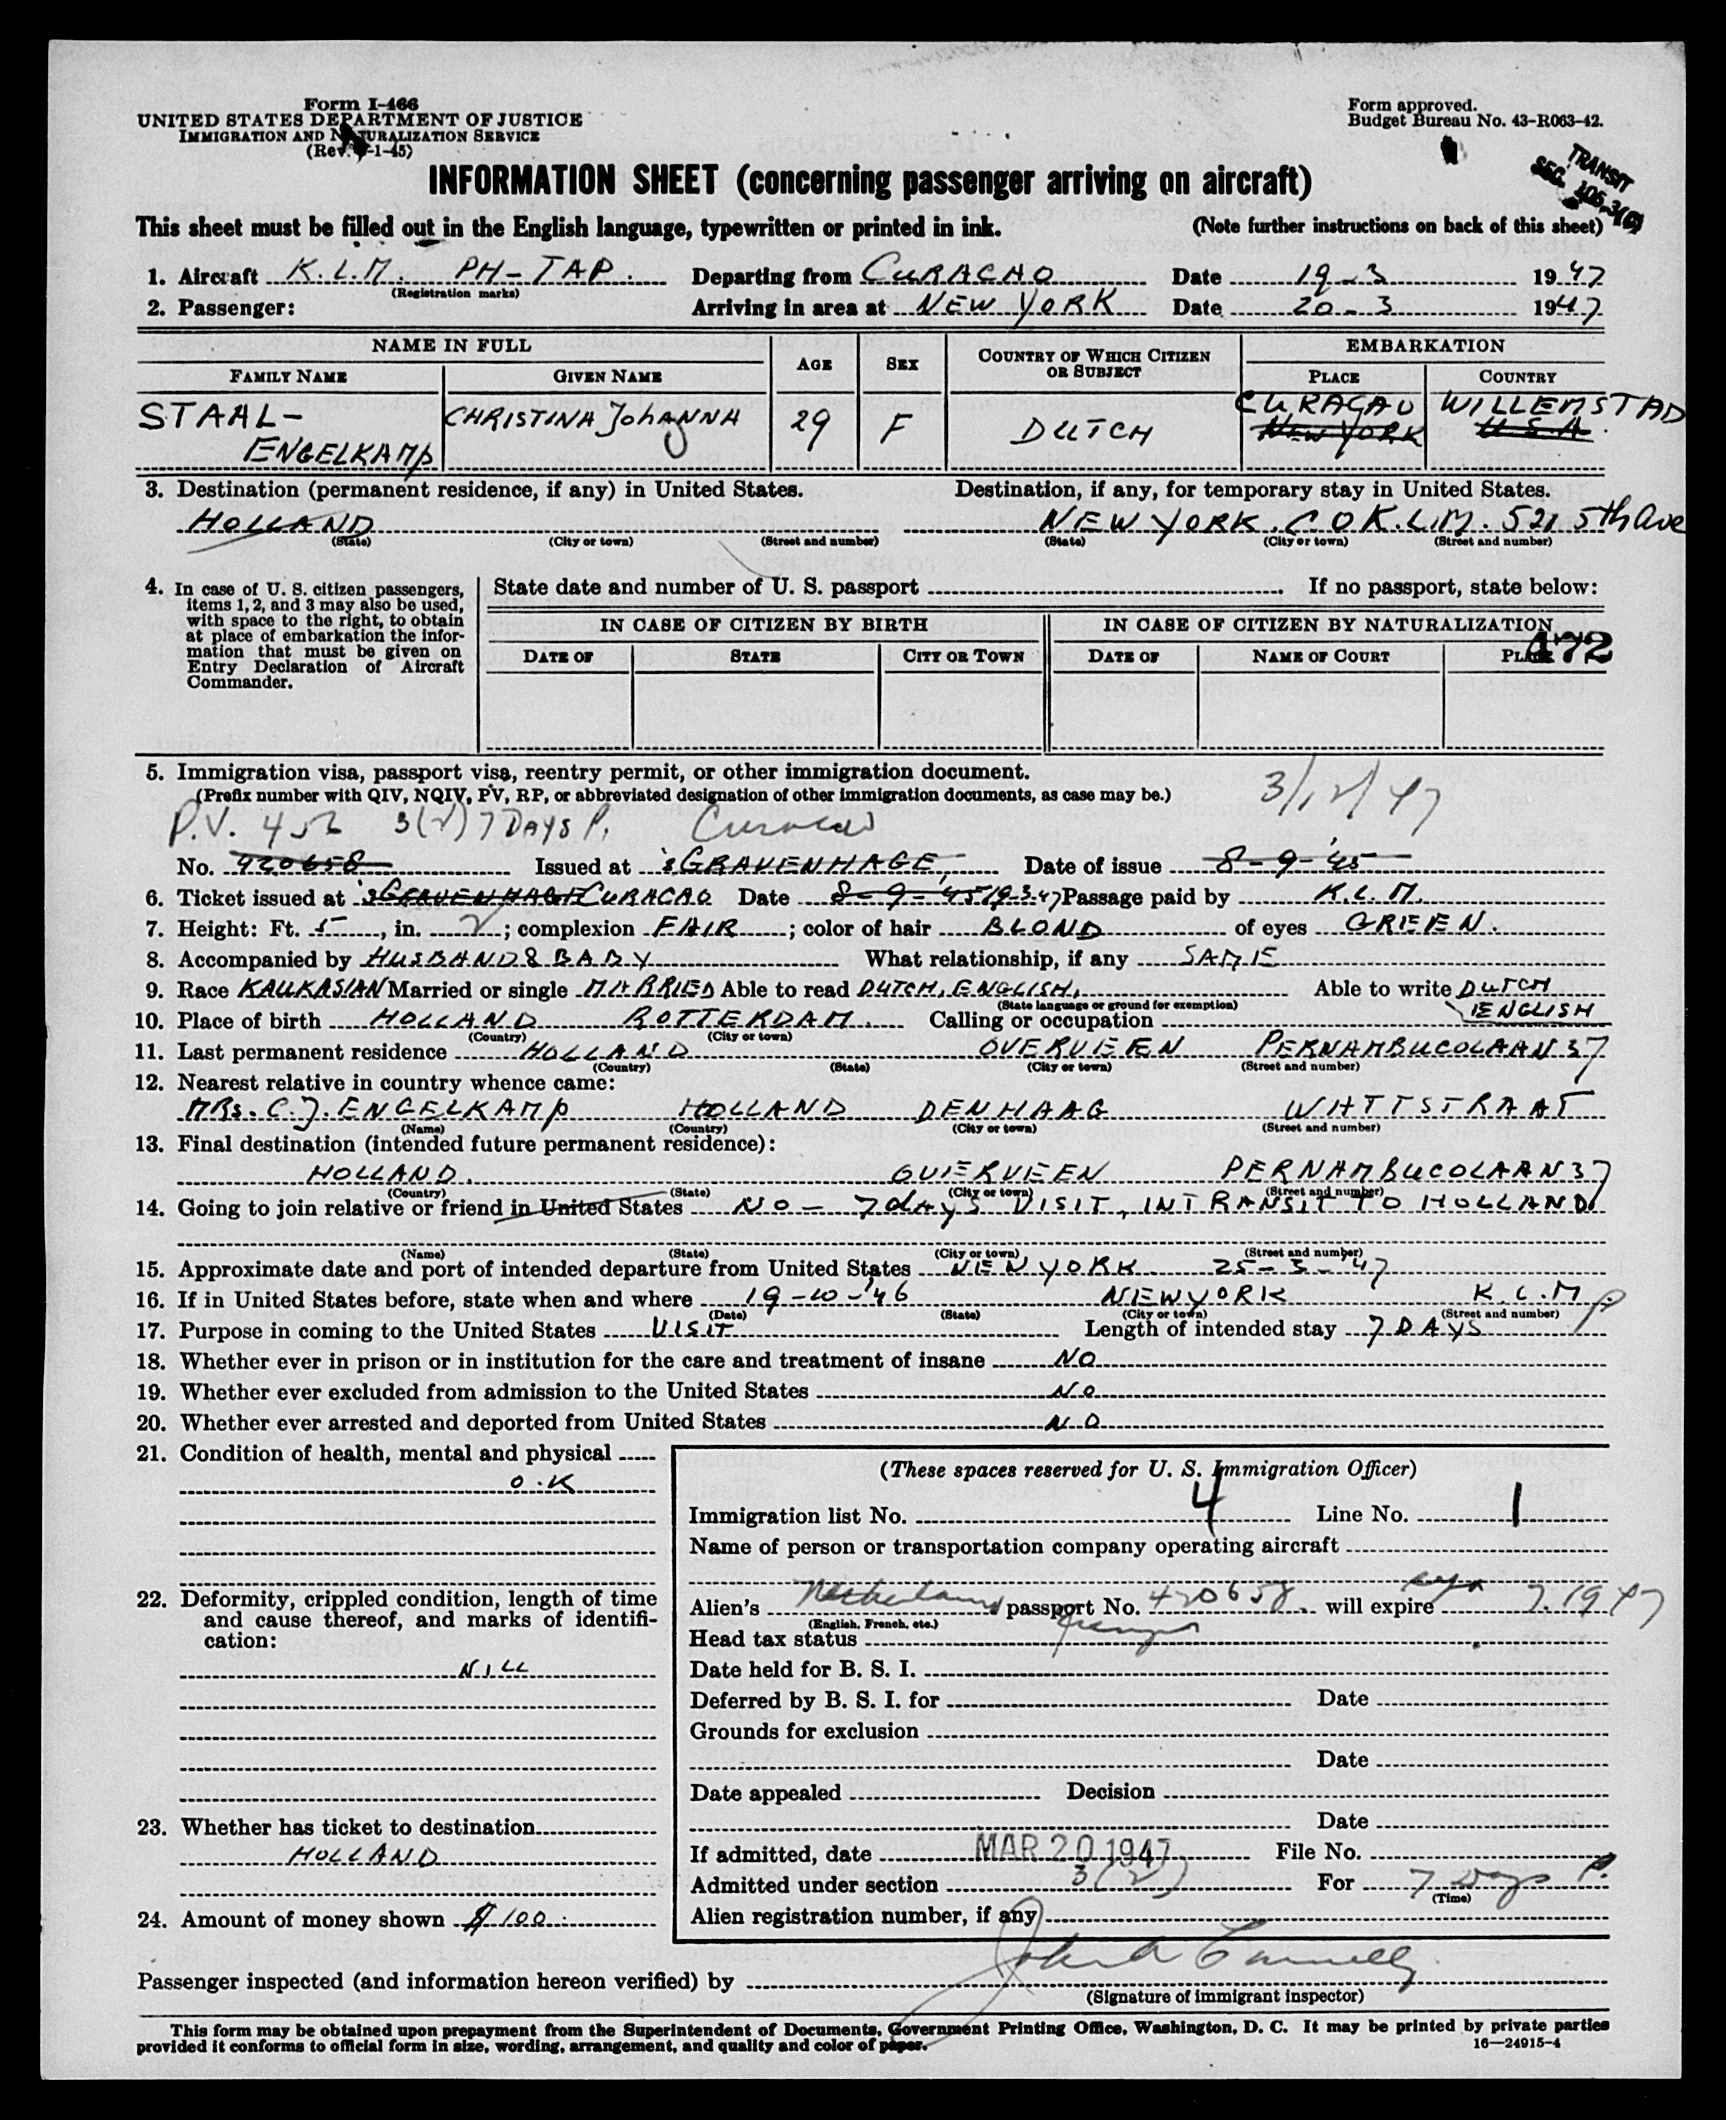 Form I-466
UNITED STATES DEPARTMENT OF JUSTICE
IMMIGRATION AND NATURALIZATION SERVICE
(Rev. -1-45)
Form approved.
Budget Bureau No. 43-R063-42.
TRANSIT
SEC. 105.3(
INFORMATION SHEET (concerning passenger arriving on aircraft)
This sheet must be filled out in the English language, typewritten or printed in ink. (Note further instructions on back of this sheet)
1. Aircraft K.L.M. PH-TAP. Departing from CURACAO Date 19-3 1947
(Registration marks)
2. Passenger: Arriving in area at NEW YORK Date 20-3 1947
NAME IN FULL AGE SEX COUNTRY OF WHICH CITIZEN OR SUBJECT EMBARKATION
FAMILY NAME GIVEN NAME PLACE COUNTRY
STAAL-ENGELKAMP CHRISTINA JohANNA 29 F DUTCH CURACAO WILLEMSTAD
NEW YORK U.S.A.
3. Destination (permanent residence, if any) in United States. Destination, if any, for temporary stay in United States.
HOLLAND NEW YORK. C O K.L.M. 521 5th Ave
(State) (City or town) (Street and number) (State) (City or town) (Street and number)
4. In case of U. S. citizen passengers, items 1, 2, and 3 may also be used, with space to the right, to obtain at place of embarkation the information that must be given on Entry Declaration of Aircraft Commander.
State date and number of U. S. passport If no passport, state below:
IN CASE OF CITIZEN BY BIRTH IN CASE OF CITIZEN BY NATURALIZATION
472
DATE OF STATE CITY OR TOWN DATE OF NAME OF COURT PLACE
5. Immigration visa, passport visa, reentry permit, or other immigration document.
(Prefix number with QIV, NQIV, PV, RP, or abbreviated designation of other immigration documents, as case may be.)
3/12/47
P.V. 456 3(2) 7 DAYS P. Curacao
No. 420658 Issued at 'sGRAVENHAGE, Date of issue 8-9-'45
6. Ticket issued at 'sGRAVENHAGE CURACAO Date 8-9-'45 19-3-47 Passage paid by K.L.M.
7. Height: Ft. 5, in. 2; complexion FAIR; color of hair BLOND of eyes GREEN.
8. Accompanied by HUSBAND & BABY What relationship, if any SAME
9. Race KAUKASIAN Married or single MARRIED Able to read DUTCH, ENGLISH, Able to write DUTCH
(State language or ground for exemption) ENGLISH
10. Place of birth HOLLAND ROTTERDAM. Calling or occupation
(Country) (City or town)
11. Last permanent residence HOLLAND OVERVEEN PERNAMBUCOLAAN 37
(Country) (State) (City or town) (Street and number)
12. Nearest relative in country whence came:
MRS. C.J. ENGELKAMP HOLLAND DEN HAAG WATTSTRAAT
(Name) (Country) (City or town) (Street and number)
13. Final destination (intended future permanent residence):
HOLLAND. OVERVEEN PERNAMBUCOLAAN 37
(Country) (State) (City or town) (Street and number)
14. Going to join relative or friend in United States NO - 7 dAYS VISIT, IN TRANSIT TO HOLLAND
(Name) (State) (City or town) (Street and number)
15. Approximate date and port of intended departure from United States NEW YORK 25-3-'47
16. If in United States before, state when and where 19-10-'46 NEW YORK K.L.M
(Date) (State) (City or town) (Street and number)
17. Purpose in coming to the United States VISIT Length of intended stay 7 DAYS P
18. Whether ever in prison or in institution for the care and treatment of insane NO
19. Whether ever excluded from admission to the United States NO
20. Whether ever arrested and deported from United States NO
21. Condition of health, mental and physical
O.K
22. Deformity, crippled condition, length of time and cause thereof, and marks of identification:
NILL
23. Whether has ticket to destination
HOLLAND
24. Amount of money shown $ 100.
(These spaces reserved for U. S. Immigration Officer)
Immigration list No. 4 Line No. 1
Name of person or transportation company operating aircraft
Alien's Netherlands passport No. 420658. will expire 7. 1947
(English, French, etc.)
Head tax status
Date held for B. S. I.
Deferred by B. S. I. for Date
Grounds for exclusion
Date
Date appealed Decision
Date
If admitted, date MAR 20 1947 File No.
Admitted under section 3(2) For 7 Days P.
(Time)
Alien registration number, if any
Passenger inspected (and information hereon verified) by
(Signature of immigrant inspector)
This form may be obtained upon prepayment from the Superintendent of Documents, Government Printing Office, Washington, D. C. It may be printed by private parties
provided it conforms to official form in size, wording, arrangement, and quality and color of paper. 16—24915-4